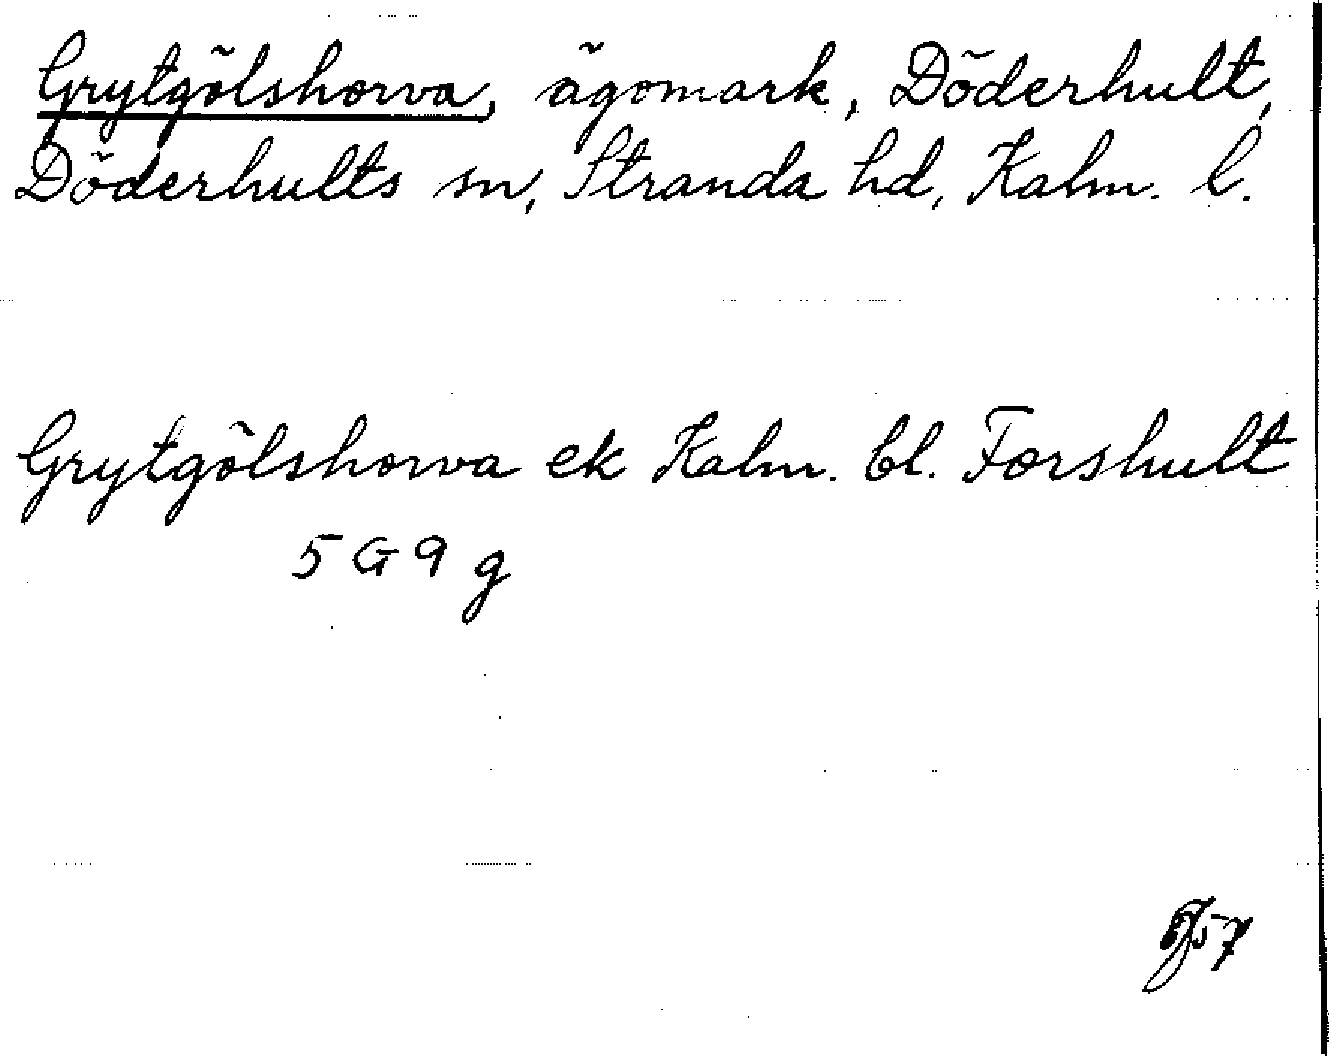 Grytgölshorva, ägomark, Döderhult,
Döderhults sn, Stranda hd, Kalm. l.
Grytgölshorva ek Kalm. bl. Forshult
5 G 9 g
57